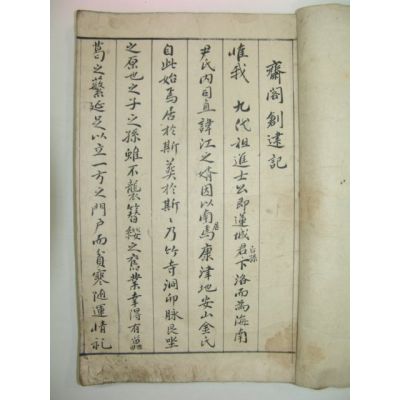 齋閣創建記
惟我 九代祖進士公即蓮城君下洛而為海南
尹氏內司直 諱江之婿因以南居焉康津地安山金氏
自此始焉居於斯葬於斯〻乃竹寺洞卯脉艮坐
之原也之子之孫雖不襲簪纓之舊業幸得有
葛之蘩延足以立一方之門戶而貧寒隨運情禮